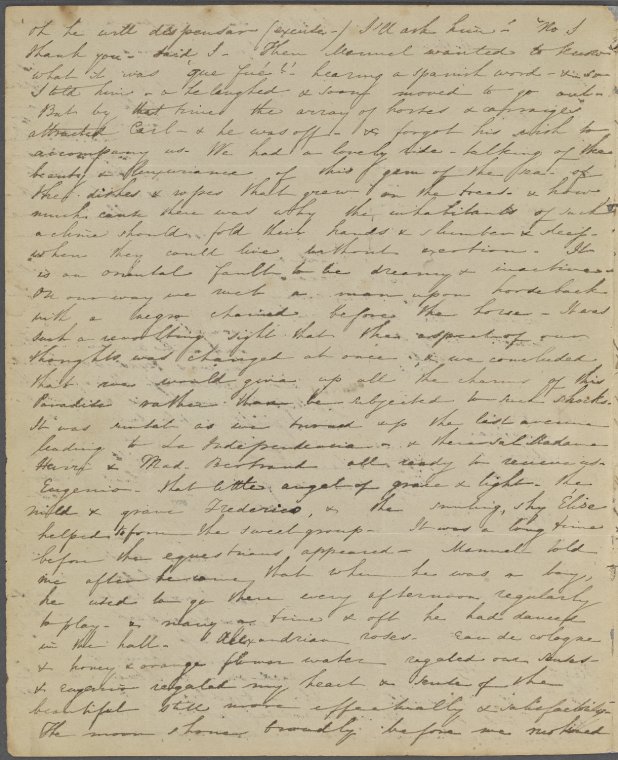 oh he will dispensar - (excuse -) I'll ask him." "No I
thank you - said I - Then Manuel wanted to know
what it was 'que fué?' hearing a spanish word - & so
I told him - & he laughed & soon moved to go out -
But by that time the array of horses &
attracted Carl - & he was off - & forgot his wish to
accompany us. We had a lovely ride - talking of the
beauty & luxuriance of this gem of the sea - of
the dishes & ropes that grew on the trees - & how
much cause there was why the inhabitants of such
a clime should fold their hands & slumber & sleep -
when they could live without exertion - It
is an oriental fault to be dreamy & inactive -
On our way we met a man upon horseback
with a negro chained before the horse - It was
such a revolting sight that the aspect of our
thoughts was changed at once & we concluded
that we would give up all the charms of this
Paradise rather than be subjected to such shocks -
It was as we turned up the last avenue
leading to La Independencia -, & there sat Madame
& Mad. Bertrand all ready to receive us -
Eugenio - that little angel of grace & light - the
mild & grave Frederico, & the smiling, shy Elise
helped to form the sweet group - It was a long time
before the equestrians appeared - Manuel told
me after he came, that when he was a boy,
he used to go there every afternoon regularly
to play - & many a time & oft he had danced
in the hall - Alexandrian roses - Eau de cologne
& honey & orange flower water regaled our senses -
& Eugenio regaled my heart & sense of the
beautiful still more effectually & satisfactorily -
The moon shone broadly before we noticed